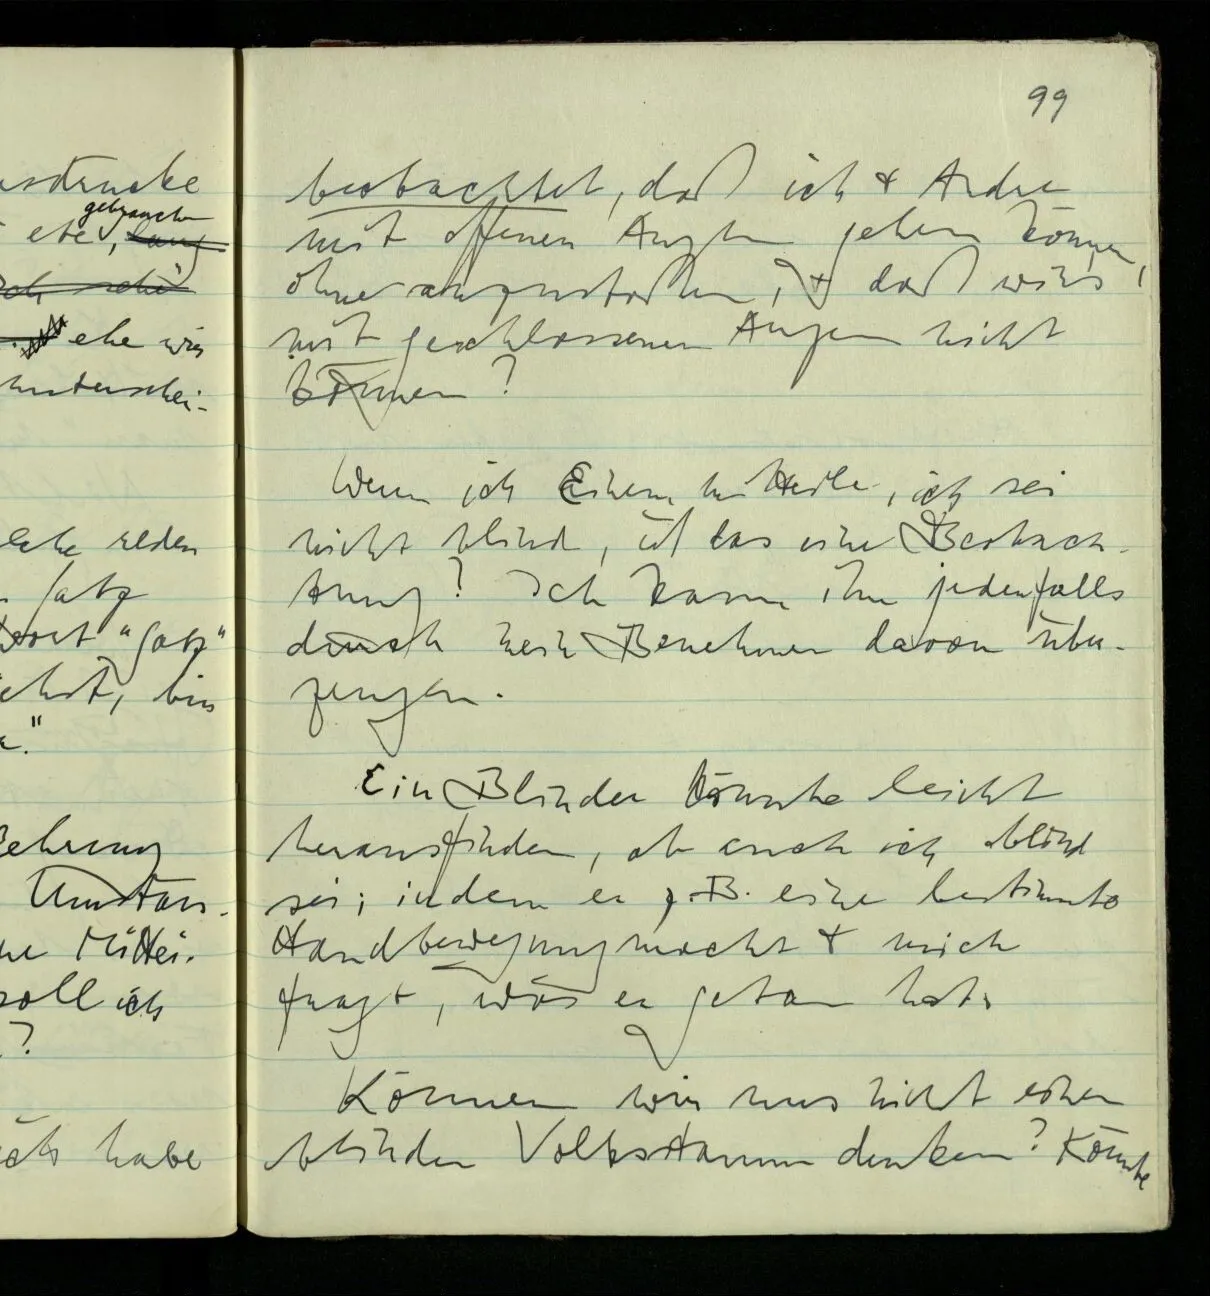 99
usdrucke
gebrauchen
ehe, lang
ehe wir
unterschei-
reden
Satz
Wort "Satz"
bin
Umstän-
ne Mittei-
soll ich
?
ich habe
beobachtet, daß ich & Andre
mit offenen Augen gehen können,
ohne anzustoßen, & daß wir's
mit geschlossenen Augen nicht
können?
Wenn ich Einem mitteile, ich sei
nicht blind, ist das eine Beobach-
tung? Ich kann ihn jedenfalls
durch mein Benehmen davon über-
zeugen.
Ein Blinder könnte leicht
herausfinden, ob auch ich blind
sei; indem er z.B. eine bestimmte
Handbewegung macht & mich
fragt, was er getan hat.
Können wir uns nicht einen
blinden Volksstamm denken? Könnte